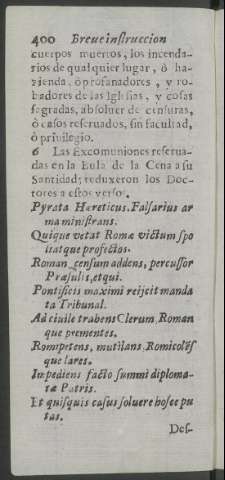 400 Breue instruccion
cuerpos muertos, los incenda-
rios de qualquier lugar, ò ha-
zienda, ò profanadores, y ro-
badores de las Iglesias, y cosas
sagradas, absoluer de censuras,
ò casos reseruados, sin facultad,
ò priuilegio.
6 Las Excomuniones reserua-
das en la Bula de la Cena a su
Santidad; reduxeron los Doc-
tores a estos versos.
Pyrata Hæreticus. Falsarius ar
ma ministrans.
Quique vetat Romæ victum spo
liatque profectos.
Roman censum addens, percussor
Præsulis, et qui.
Pontificis maximi reijcit manda
ta Tribunal.
Ad ciuile trahens Clerum, Roman
que prementes.
Romipetens, mutilans, Romicolẽs
que lares.
Impediens facto summi diploma-
ta Patris.
Et quisquis casus soluere hosce pu
tas.
Des-